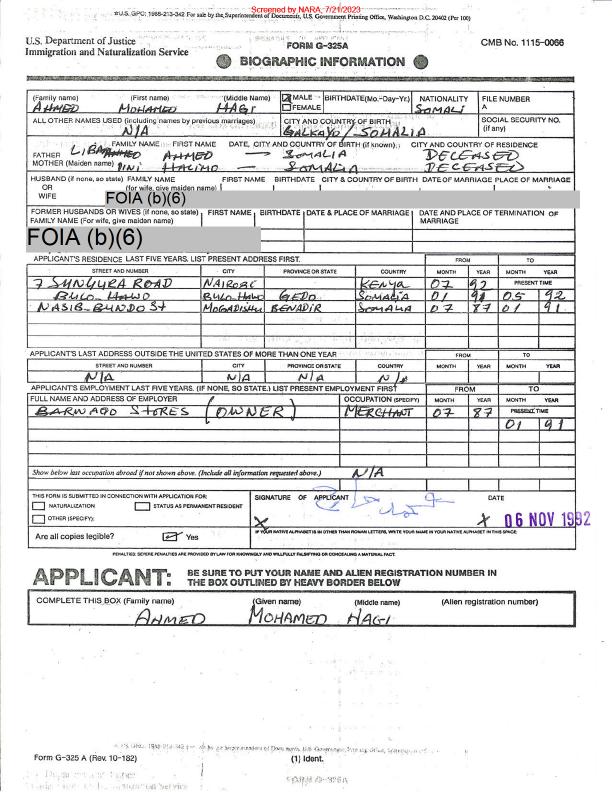 Screened by NARA, 7/21/2023
☆U.S. GPO: 1988-213-342 For sale by the Superintendent of Documents, U.S. Government Printing Office, Washington D.C. 20402 (Per 100)
U.S. Department of Justice
Immigration and Naturalization Service
FORM G-325A
BIOGRAPHIC INFORMATION
OMB No. 1115-0066
(Family name) (First name) (Middle Name) MALE FEMALE BIRTHDATE(Mo.-Day-Yr.) NATIONALITY FILE NUMBER
AHMED MOHAMED HAGI SOMALI A
ALL OTHER NAMES USED (Including names by previous marriages) CITY AND COUNTRY OF BIRTH SOCIAL SECURITY NO. (if any)
N/A GALKAYO/SOMALIA
FAMILY NAME FIRST NAME DATE, CITY AND COUNTRY OF BIRTH (if known) CITY AND COUNTRY OF RESIDENCE
FATHER AHMED — SOMALIA DECEASED
MOTHER (Maiden name) HALIMO — SOMALIA DECEASED
HUSBAND (if none, so state) FAMILY NAME FIRST NAME BIRTHDATE CITY & COUNTRY OF BIRTH DATE OF MARRIAGE PLACE OF MARRIAGE
OR (for wife, give maiden name)
WIFE FOIA (b)(6)
FORMER HUSBANDS OR WIVES (if none, so state) FIRST NAME BIRTHDATE DATE & PLACE OF MARRIAGE DATE AND PLACE OF TERMINATION OF MARRIAGE
FAMILY NAME (For wife, give maiden name)
FOIA (b)(6)
APPLICANT'S RESIDENCE LAST FIVE YEARS. LIST PRESENT ADDRESS FIRST. FROM TO
STREET AND NUMBER CITY PROVINCE OR STATE COUNTRY MONTH YEAR MONTH YEAR
7 SUNGURA ROAD NAIROBI KENYA 07 92 PRESENT TIME
BULO-HAWO BULO-HAWO GEDO SOMALIA 01 91 05 92
NASIB-BUNDO St MOGADISHU BENADIR SOMALIA 07 87 01 91
APPLICANT'S LAST ADDRESS OUTSIDE THE UNITED STATES OF MORE THAN ONE YEAR FROM TO
STREET AND NUMBER CITY PROVINCE OR STATE COUNTRY MONTH YEAR MONTH YEAR
N/A N/A N/A N/A
APPLICANT'S EMPLOYMENT LAST FIVE YEARS. (IF NONE, SO STATE.) LIST PRESENT EMPLOYMENT FIRST FROM TO
FULL NAME AND ADDRESS OF EMPLOYER OCCUPATION (SPECIFY) MONTH YEAR MONTH YEAR
BARWAQO STORES (OWNER) MERCHANT 07 87 PRESENT TIME
01 91
Show below last occupation abroad if not shown above. (Include all information requested above.) N/A
THIS FORM IS SUBMITTED IN CONNECTION WITH APPLICATION FOR: SIGNATURE OF APPLICANT DATE
NATURALIZATION STATUS AS PERMANENT RESIDENT
OTHER (SPECIFY): X X 06 NOV 1992
Are all copies legible? Yes IF YOUR NATIVE ALPHABET IS IN OTHER THAN ROMAN LETTERS, WRITE YOUR NAME IN YOUR NATIVE ALPHABET IN THIS SPACE:
PENALTIES: SEVERE PENALTIES ARE PROVIDED BY LAW FOR KNOWINGLY AND WILLFULLY FALSIFYING OR CONCEALING A MATERIAL FACT.
APPLICANT: BE SURE TO PUT YOUR NAME AND ALIEN REGISTRATION NUMBER IN
THE BOX OUTLINED BY HEAVY BORDER BELOW
COMPLETE THIS BOX (Family name) (Given name) (Middle name) (Alien registration number)
AHMED MOHAMED HAGI
Form G-325 A (Rev. 10-182) (1) Ident.